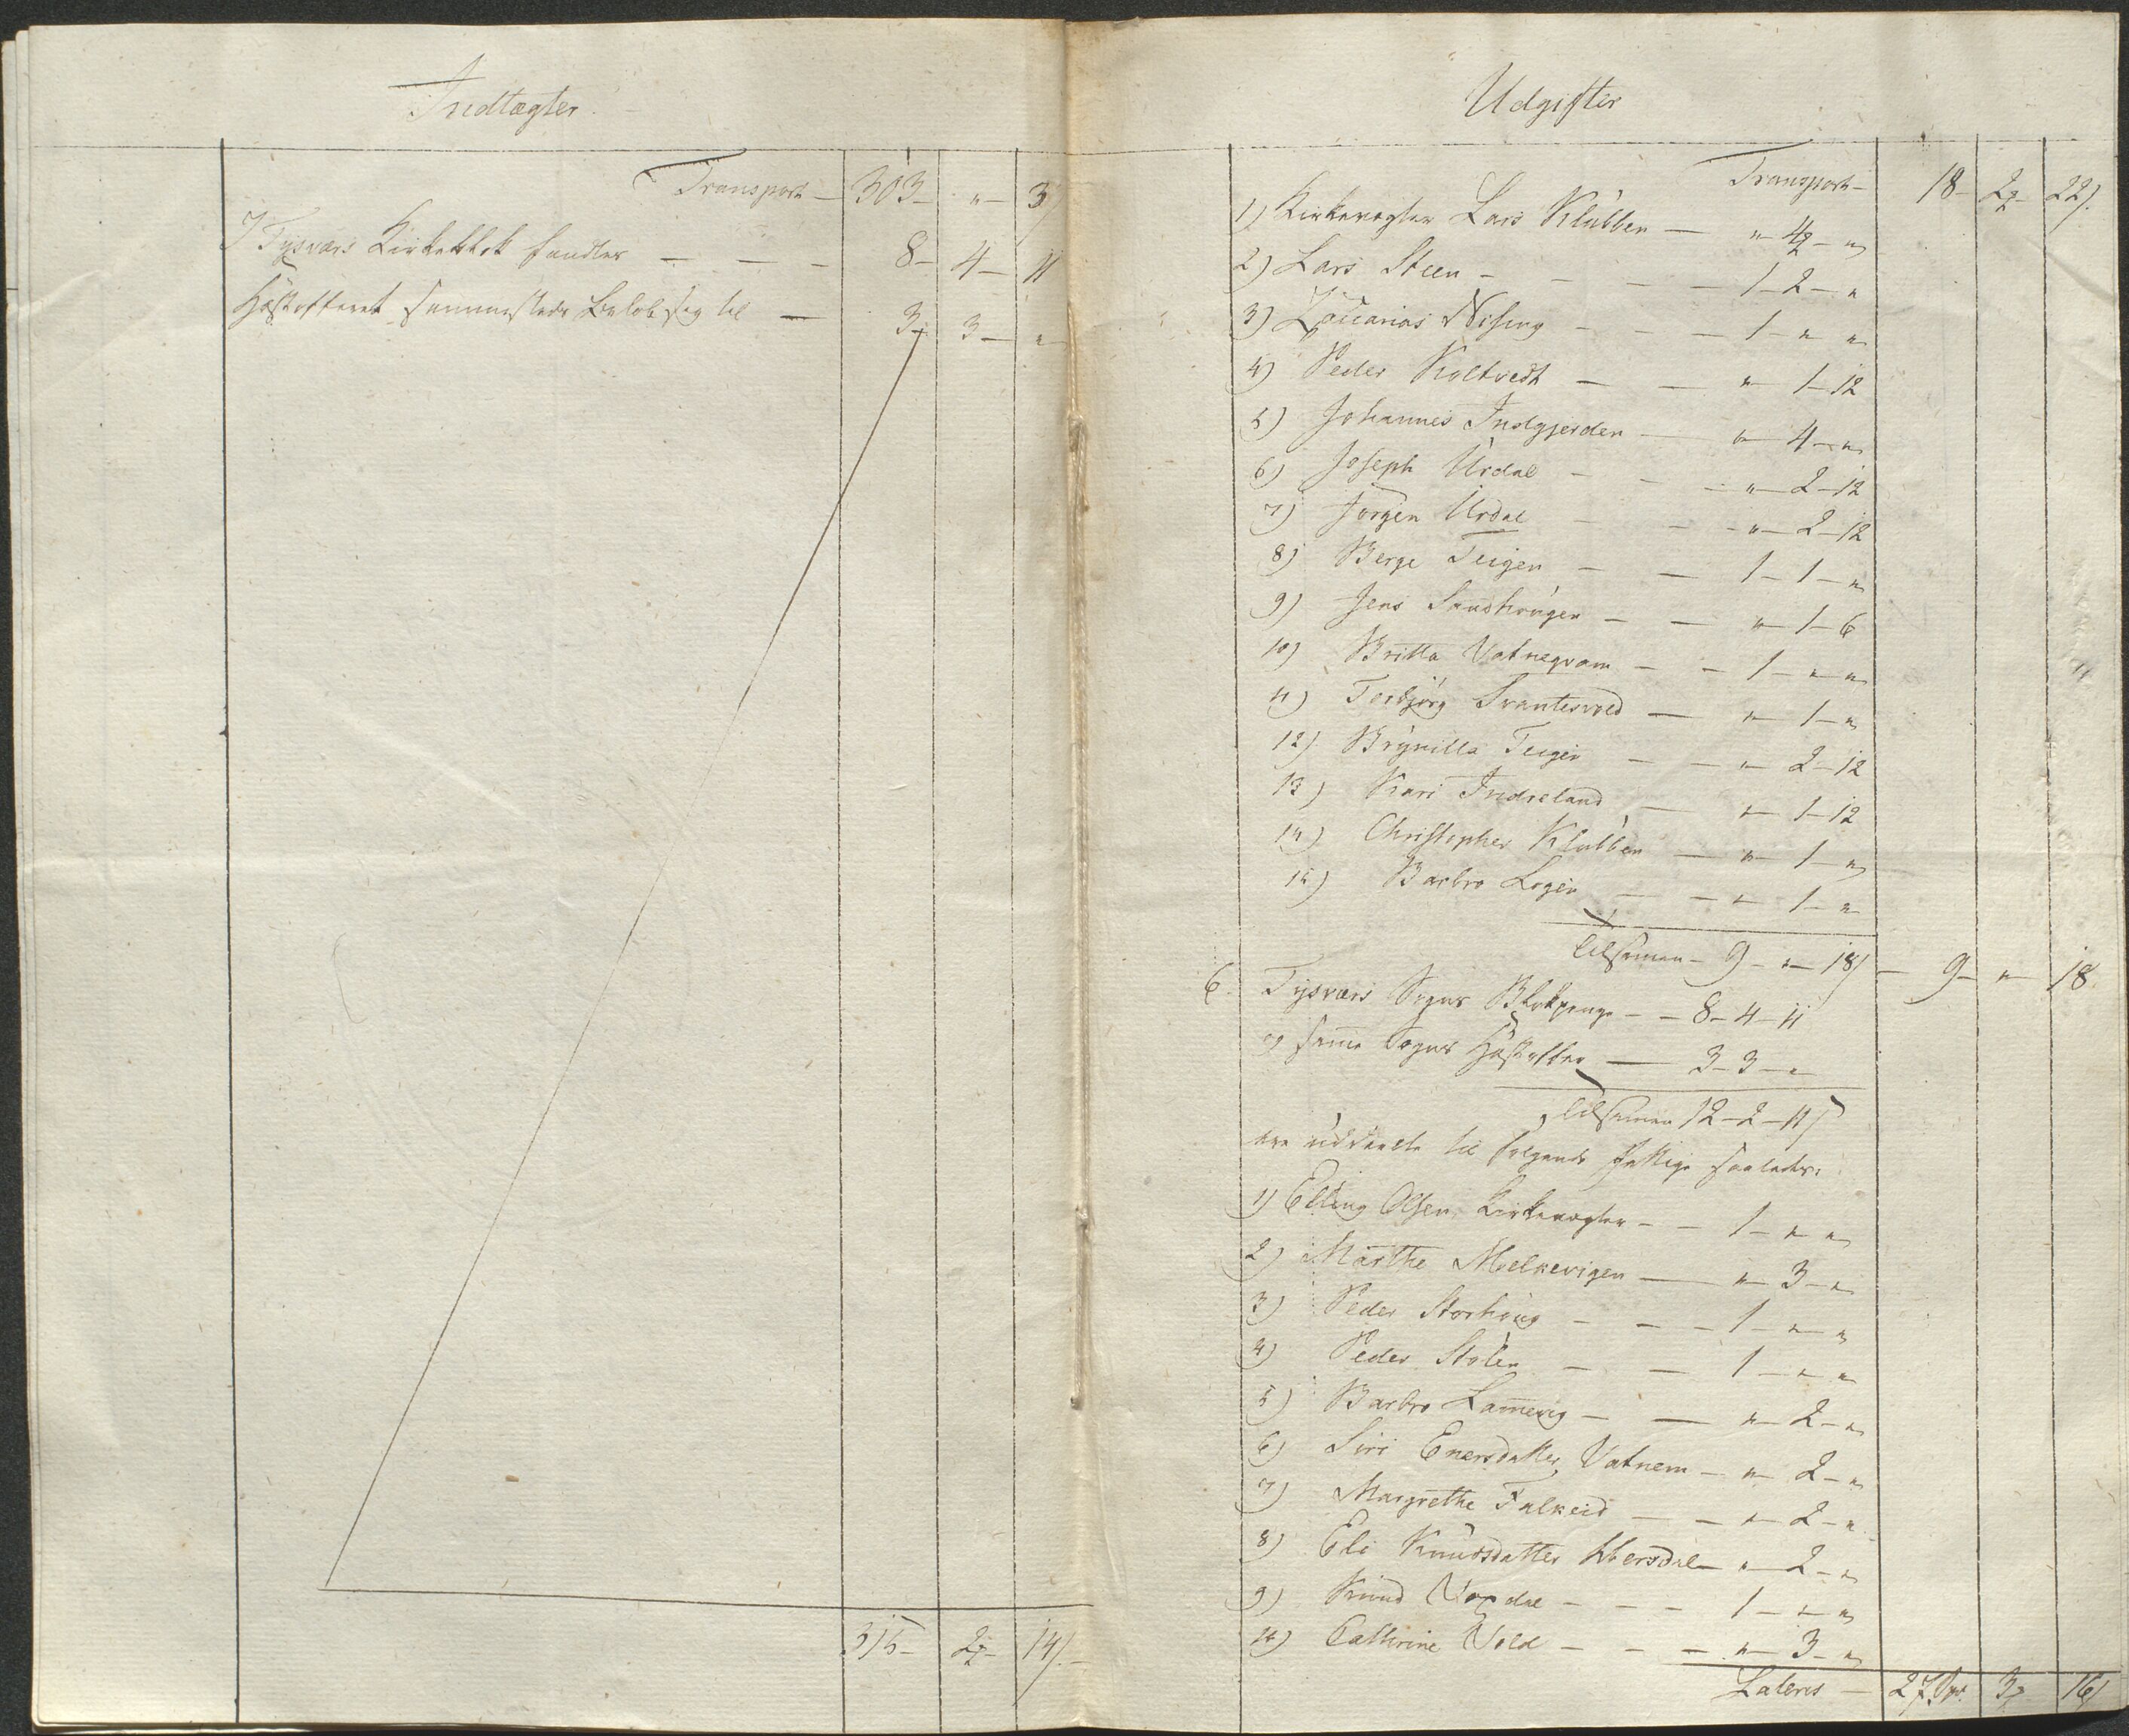 Indtægter.
Transport — 303 — " — 3/
I Tysværs Kirkeblok fandtes — — — 8 — 4 — 11
Høstofferet sammesteds beløb sig til — 3 — 3 — "
315 — 2 — 14/.
Udgifter
Transport — 18 — 2 — 22/.
1) Kirkevægter Lars Klubben — " — 4 — "
2) Lars Steen — — — 1 — 2 — "
3) Zacarias — — — 1 — " "
4) Peder Koltvedt — — " — 1 — 12
5) Johannes Indgjerden — " — 4 — "
6) Joseph Urdal — — " — 2 — 12
7) Jørgen Urdal — — " — 2 — 12
8) Berge Teigen — — 1 — 1 — "
9) Jens Sandhougen — — " — 1 — 6
10) Britta Vatneqvam — — 1 — " — "
11) Torbjörg Svantesvold — " — 1 — "
12) Brynilla Teigen — — " — 2 — 12
13) Kari Indreland — " — 1 — 12
14) Christopher Klubben — " — 1 — "
15) Barbro Logen — — " — 1 — "
tilsamen — 9 — " — 18/ — 9 — " — 18
6. Tysværs Sogns Blokpenge — — 8 — 4 — 11
og samme Sogns Høstoffer — 3 — 3 — "
tilsamen 12 — 2 — 11/
ere uddeelte til følgende fattige saaledes:
1) Elling Olsen Kirkevægter — — 1 — " — "
2) Marthe Melkevigen — " — 3 — "
3) Peder Storhoug — — — 1 — " — "
4) Peder Stolen — — 1 — " — "
5) Barbro Lamevig — — " — 2 — "
6) Siri Enersdatter Vatnem — " — 2 — "
7) Margrethe Falkeid — — " — 2 — "
8) Eli Knudsdatter Hersdal — " — 2 — "
9) Knud — — — 1 — " — "
10) Cathrine Vold — — — " — 3 — "
Lateris — 27 Spd. 3 16/